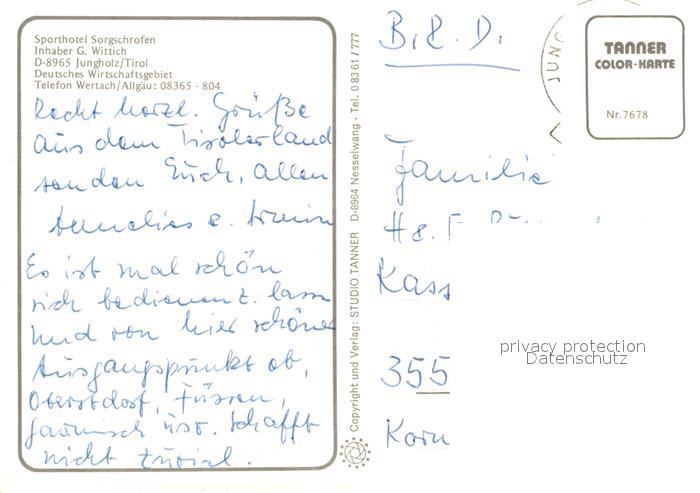 Sporthotel Sorgschrofen
Inhaber G. Wittich
D-8965 Jungholz/Tirol
Deutsches Wirtschaftsgebiet
Telefon Wertach/Allgäu: 08365 - 804
Recht herzl. Grüße
aus dem Tirolerland
senden Euch, allen
Annelies u.
Es ist mal schön
sich bedienen z. lassen
und von hier schöner
Ausgangspunkt ob,
Oberstdorf, Füssen,
Garmisch usw. Schafft
nicht zuviel.
Copyright und Verlag: STUDIO TANNER D-8964 Nesselwang · Tel. 08361/777
B.R.D.
JUNG
TANNER
COLOR-KARTE
Nr. 7678
Familie
Kass
355
Korn
privacy protection
Datenschutz